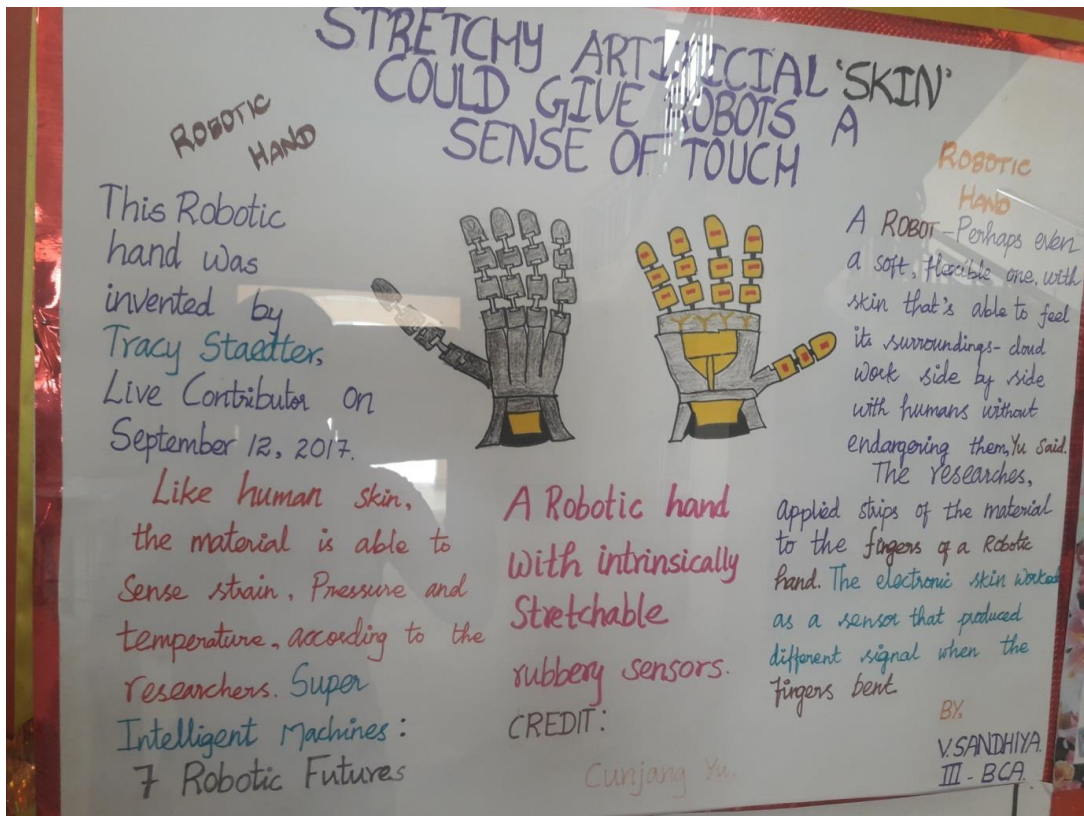 STRETCHY ARTIFICIAL 'SKIN'
COULD GIVE ROBOTS A
SENSE OF TOUCH
ROBOTIC
HAND
This Robotic
hand was
invented by
Tracy Staedter,
Live Contributor on
September 12, 2017.
Like human skin,
the material is able to
Sense strain, Pressure and
temperature, according to the
researchers. Super
Intelligent Machines:
7 Robotic Futures
A Robotic hand
with intrinsically
Stretchable
rubbery sensors.
CREDIT:
Cunjang Yu.
ROBOTIC
HAND
A ROBOT - Perhaps even
a soft, flexible one, with
skin that's able to feel
its surroundings - cloud
work side by side
with humans without
endargering them, Yu Said.
The researches,
applied strips of the material
to the fingers of a Robotic
hand. The electronic skin worked
as a sensor that produced
different signal when the
fingers bent.
BY,
V. SANDHIYA.
III - BCA.